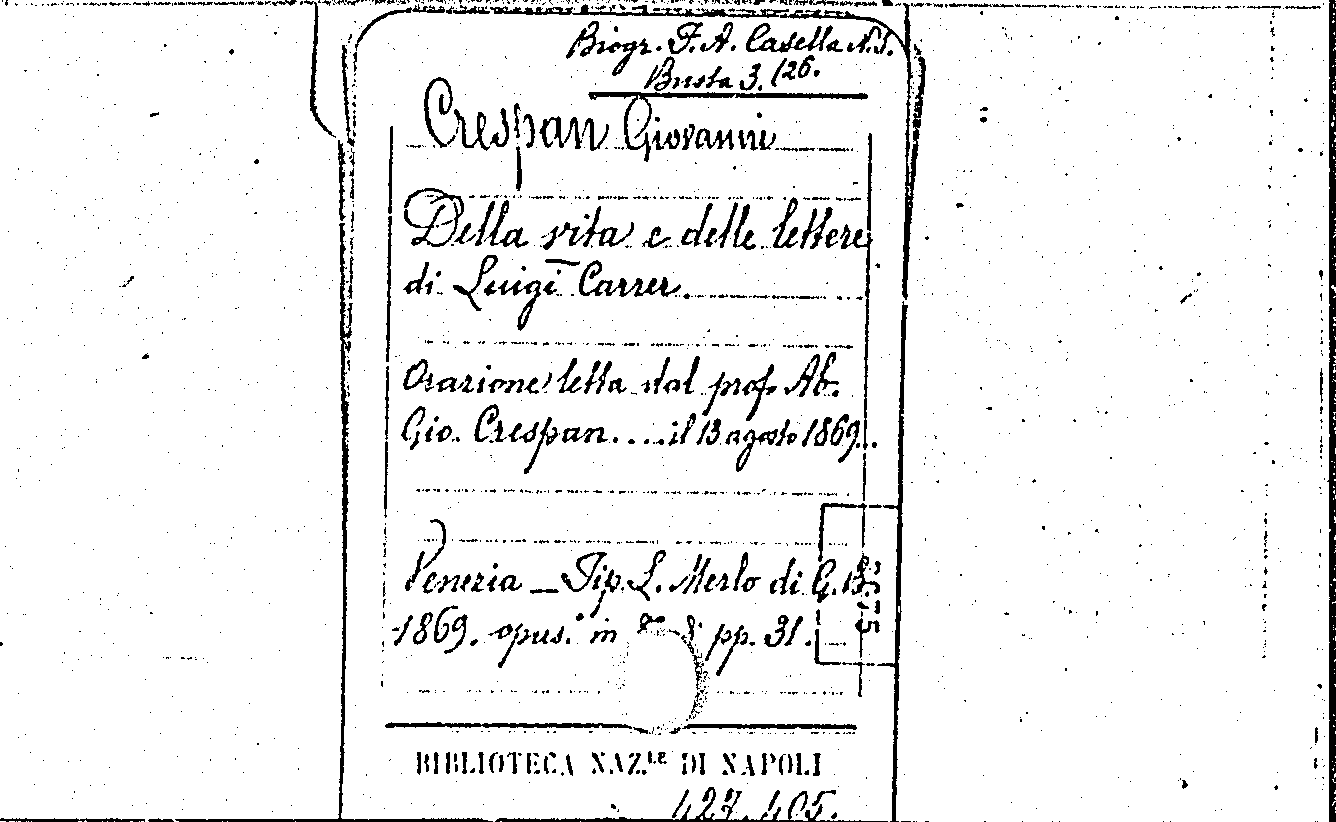 Biogr. F. A. Casella N.S.
Busta 3. (26.
Crespan Giovanni
Della vita e delle lettere
di Luigi Carrer.
Orazione letta dal prof. Ab.
Gio. Crespan.... il 13 agosto 1869..
Venezia _ Tip. L. Merlo di G. B.
1869. opus. in pp. 31.
BIBLIOTECA NAZ.LE DI NAPOLI
427.405.